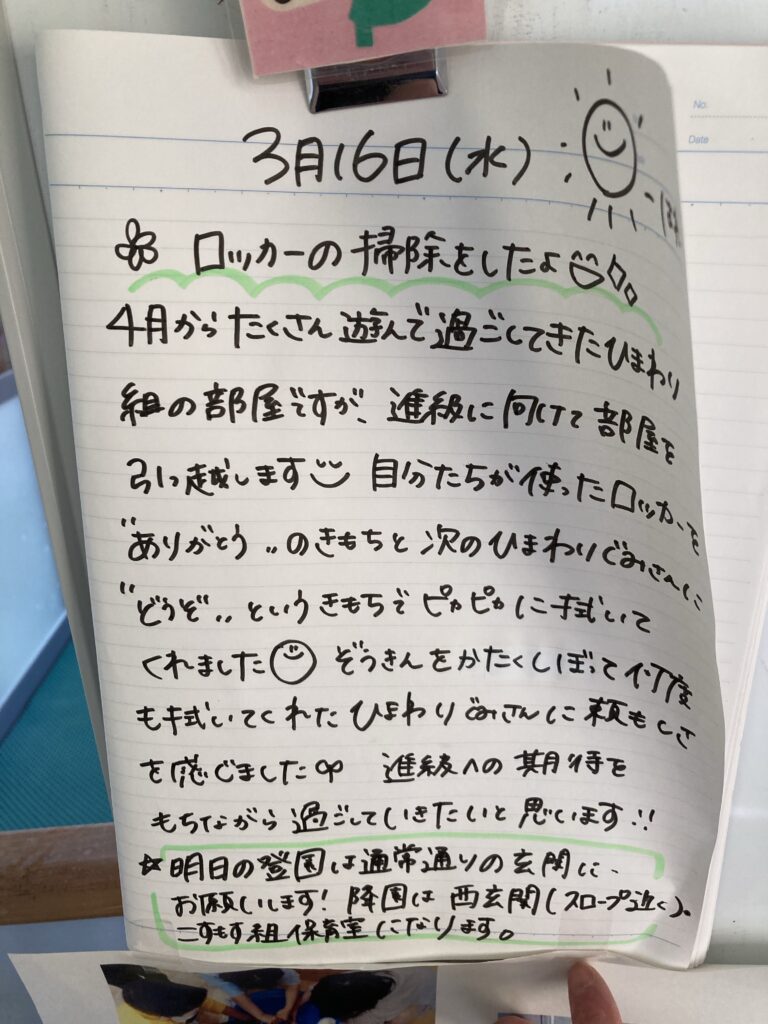 No.
Date
3月16日(水)
ロッカーの掃除をしたよ
4月からたくさん遊んで過ごしてきたひまわり
組の部屋ですが、進級に向けて部屋を
引っ越します 自分たちが使ったロッカーを
"ありがとう"のきもちと次のひまわりぐみさんに
"どうぞ"というきもちでピカピカに拭いて
くれました ぞうきんをかたくしぼって何度
も拭いてくれたひまわりぐみさんに頼もしさ
を感じました 進級への期待を
もちながら過ごしていきたいと思います!!
☆明日の登園は通常通りの玄関に、
お願いします! 降園は西玄関(スロープ近く)。
こすもす組保育室になります。